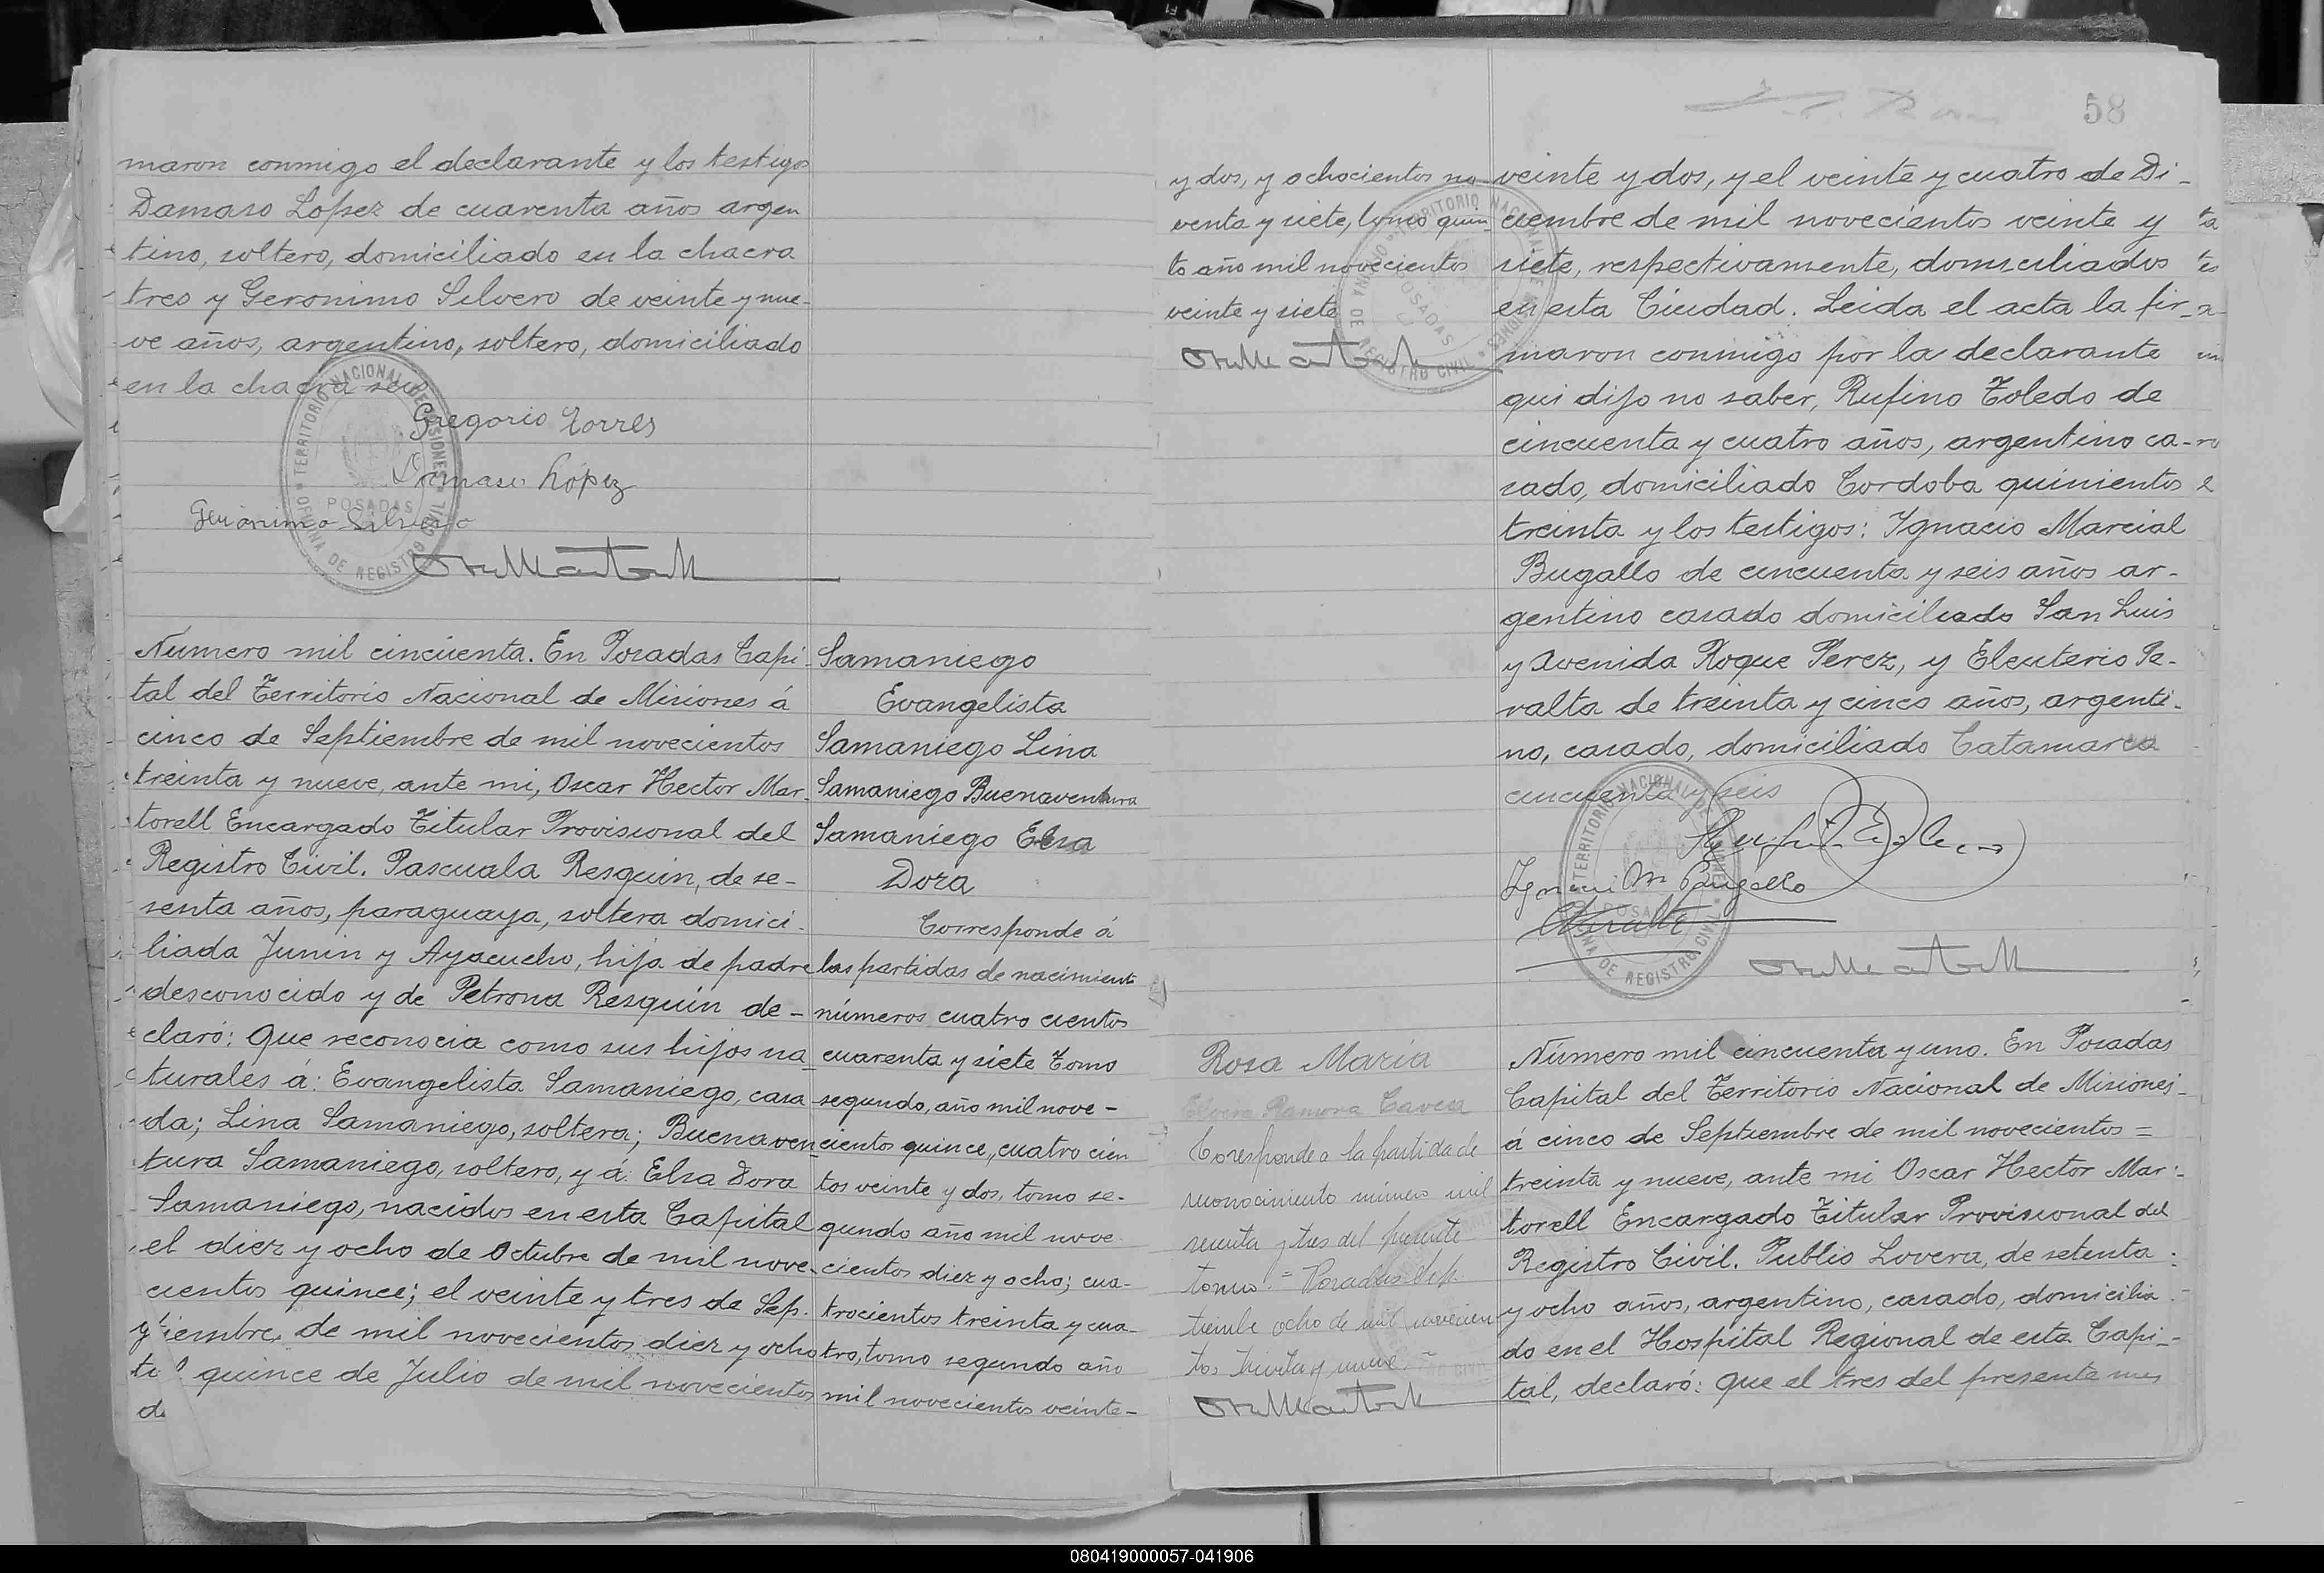 maron conmigo el declarante y los testigos
Damaso Lopez de cuarenta años argen
tino, soltero, domiciliado en la chacra
tres y Geronimo Silvero de veinte y nue-
ve años, argentino, soltero, domiciliado
en la chacra seis
Gregorio Torres
Damaso López
Gerónimo Silvero
TERRITORIO NACIONAL DE MISIONES
POSADAS
OFICINA DE REGISTRO CIVIL
Número mil cincuenta. En Posadas Capi-
tal del Territorio Nacional de Misiones á
cinco de Septiembre de mil novecientos
treinta y nueve, ante mi, Oscar Hector Mar-
torell Encargado Titular Provisional del
Registro Civil. Pascuala Resquin, de se-
senta años, paraguaya, soltera domici-
liada Junin y Ayacucho, hija de padre
desconocido y de Petrona Resquin de-
claró: Que reconocia como sus hijos na-
turales á: Evangelista Samaniego, casa-
da; Lina Samaniego, soltera; Buenaven-
tura Samaniego, soltero, y á: Elsa Dora
Samaniego, nacidos en esta Capital
el diez y ocho de Octubre de mil nove-
cientos quince; el veinte y tres de Sep-
tiembre, de mil novecientos diez y ocho
quince de Julio de mil novecientos
Samaniego
Evangelista
Samaniego Lina
Samaniego Buenaventura
Samaniego Elsa
Dora
Corresponde á
las partidas de nacimiento
números cuatro cientos
cuarenta y siete Tomo
segundo, año mil nove-
cientos quince, cuatro cien
tos veinte y dos, tomo se-
gundo año mil nove
cientos diez y ocho; cua-
trocientos treinta y cua-
tro, tomo segundo año
mil novecientos veinte-
58
y dos, y ochocientos no-
venta y siete, tomo quin
to año mil novecientos
veinte y siete
TERRITORIO NACIONAL DE MISIONES
POSADAS
OFICINA DE REGISTRO CIVIL
veinte y dos, y el veinte y cuatro de Di-
ciembre de mil novecientos veinte y
siete, respectivamente, domiciliados
en esta Ciudad. Leida el acta la fir-
maron conmigo por la declarante
qui dijo no saber, Rufino Toledo de
cincuenta y cuatro años, argentino ca-
sado, domiciliado Cordoba quinientos
treinta y los testigos: Ignacio Marcial
Bugallo de cincuenta y seis años ar-
gentino casado domiciliado San Luis
y Avenida Roque Perez, y Eleuterio Pe-
ralta de treinta y cinco años, argenti-
no, casado, domiciliado Catamarca
cincuenta y seis
Ignacio M Bugallo
TERRITORIO NACIONAL DE MISIONES
POSADAS
OFICINA DE REGISTRO CIVIL
Rosa María
Ramona
Coresponde a la partida de
reconocimiento número mil
sesenta y tres del presente
tomo. = Posadas Sep.
tiembre ocho de mil novecien
tos treinta y nueve. -
Número mil cincuenta y uno. En Posadas
Capital del Territorio Nacional de Misiones-
á cinco de Septiembre de mil novecientos =
treinta y nueve, ante mi Oscar Hector Mar-
torell Encargado Titular Provisional del
Registro Civil. Publio Lovera, de setenta
y ocho años, argentino, casado, domicilia
do en el Hospital Regional de esta Capi-
tal, declaró: Que el tres del presente mes
080419000057-041906